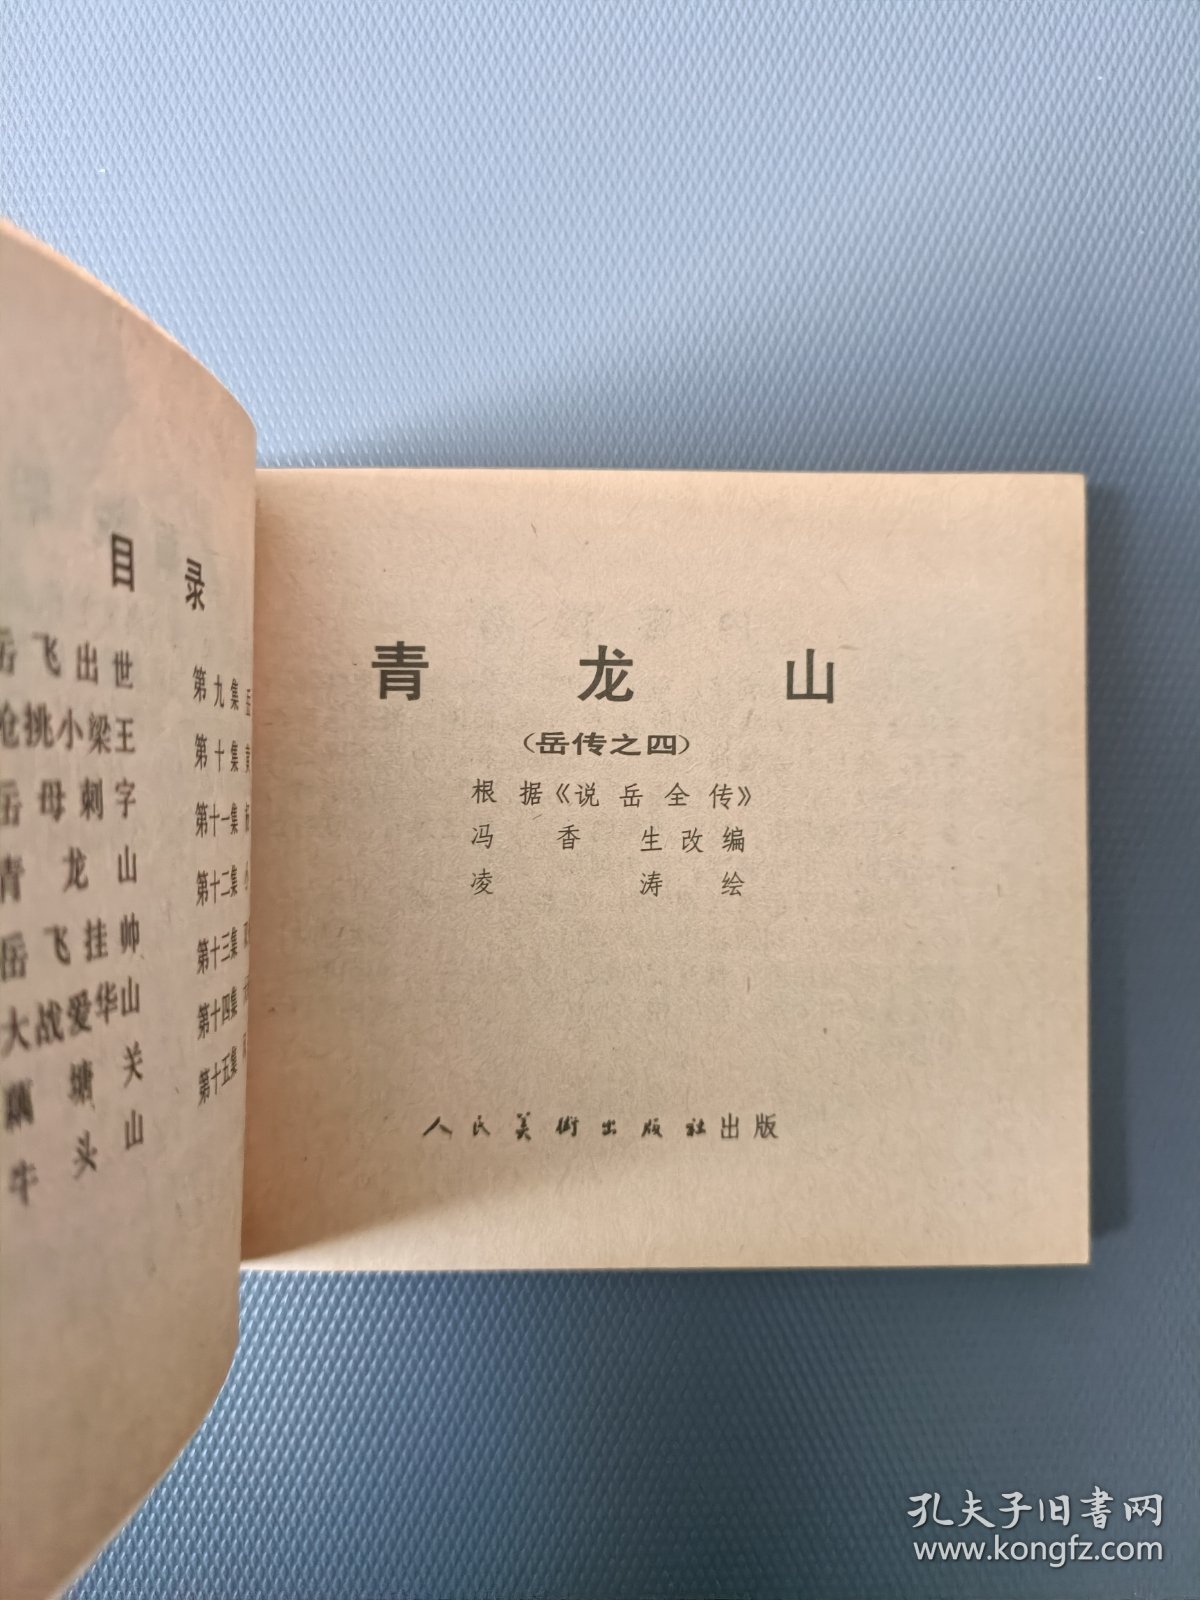 目 录
岳飞出世
枪挑小梁王
岳母刺字
青龙山
岳飞挂帅
大战爱华山
藕塘关
牛头山
第九集 岳
第十集 黄
第十一集
第十二集 小
第十三集
第十四集
第十五集
青 龙 山
(岳传之四)
根据《说岳全传》
冯香生改编
凌涛绘
人民美术出版社出版
孔夫子旧书网
www.kongfz.com